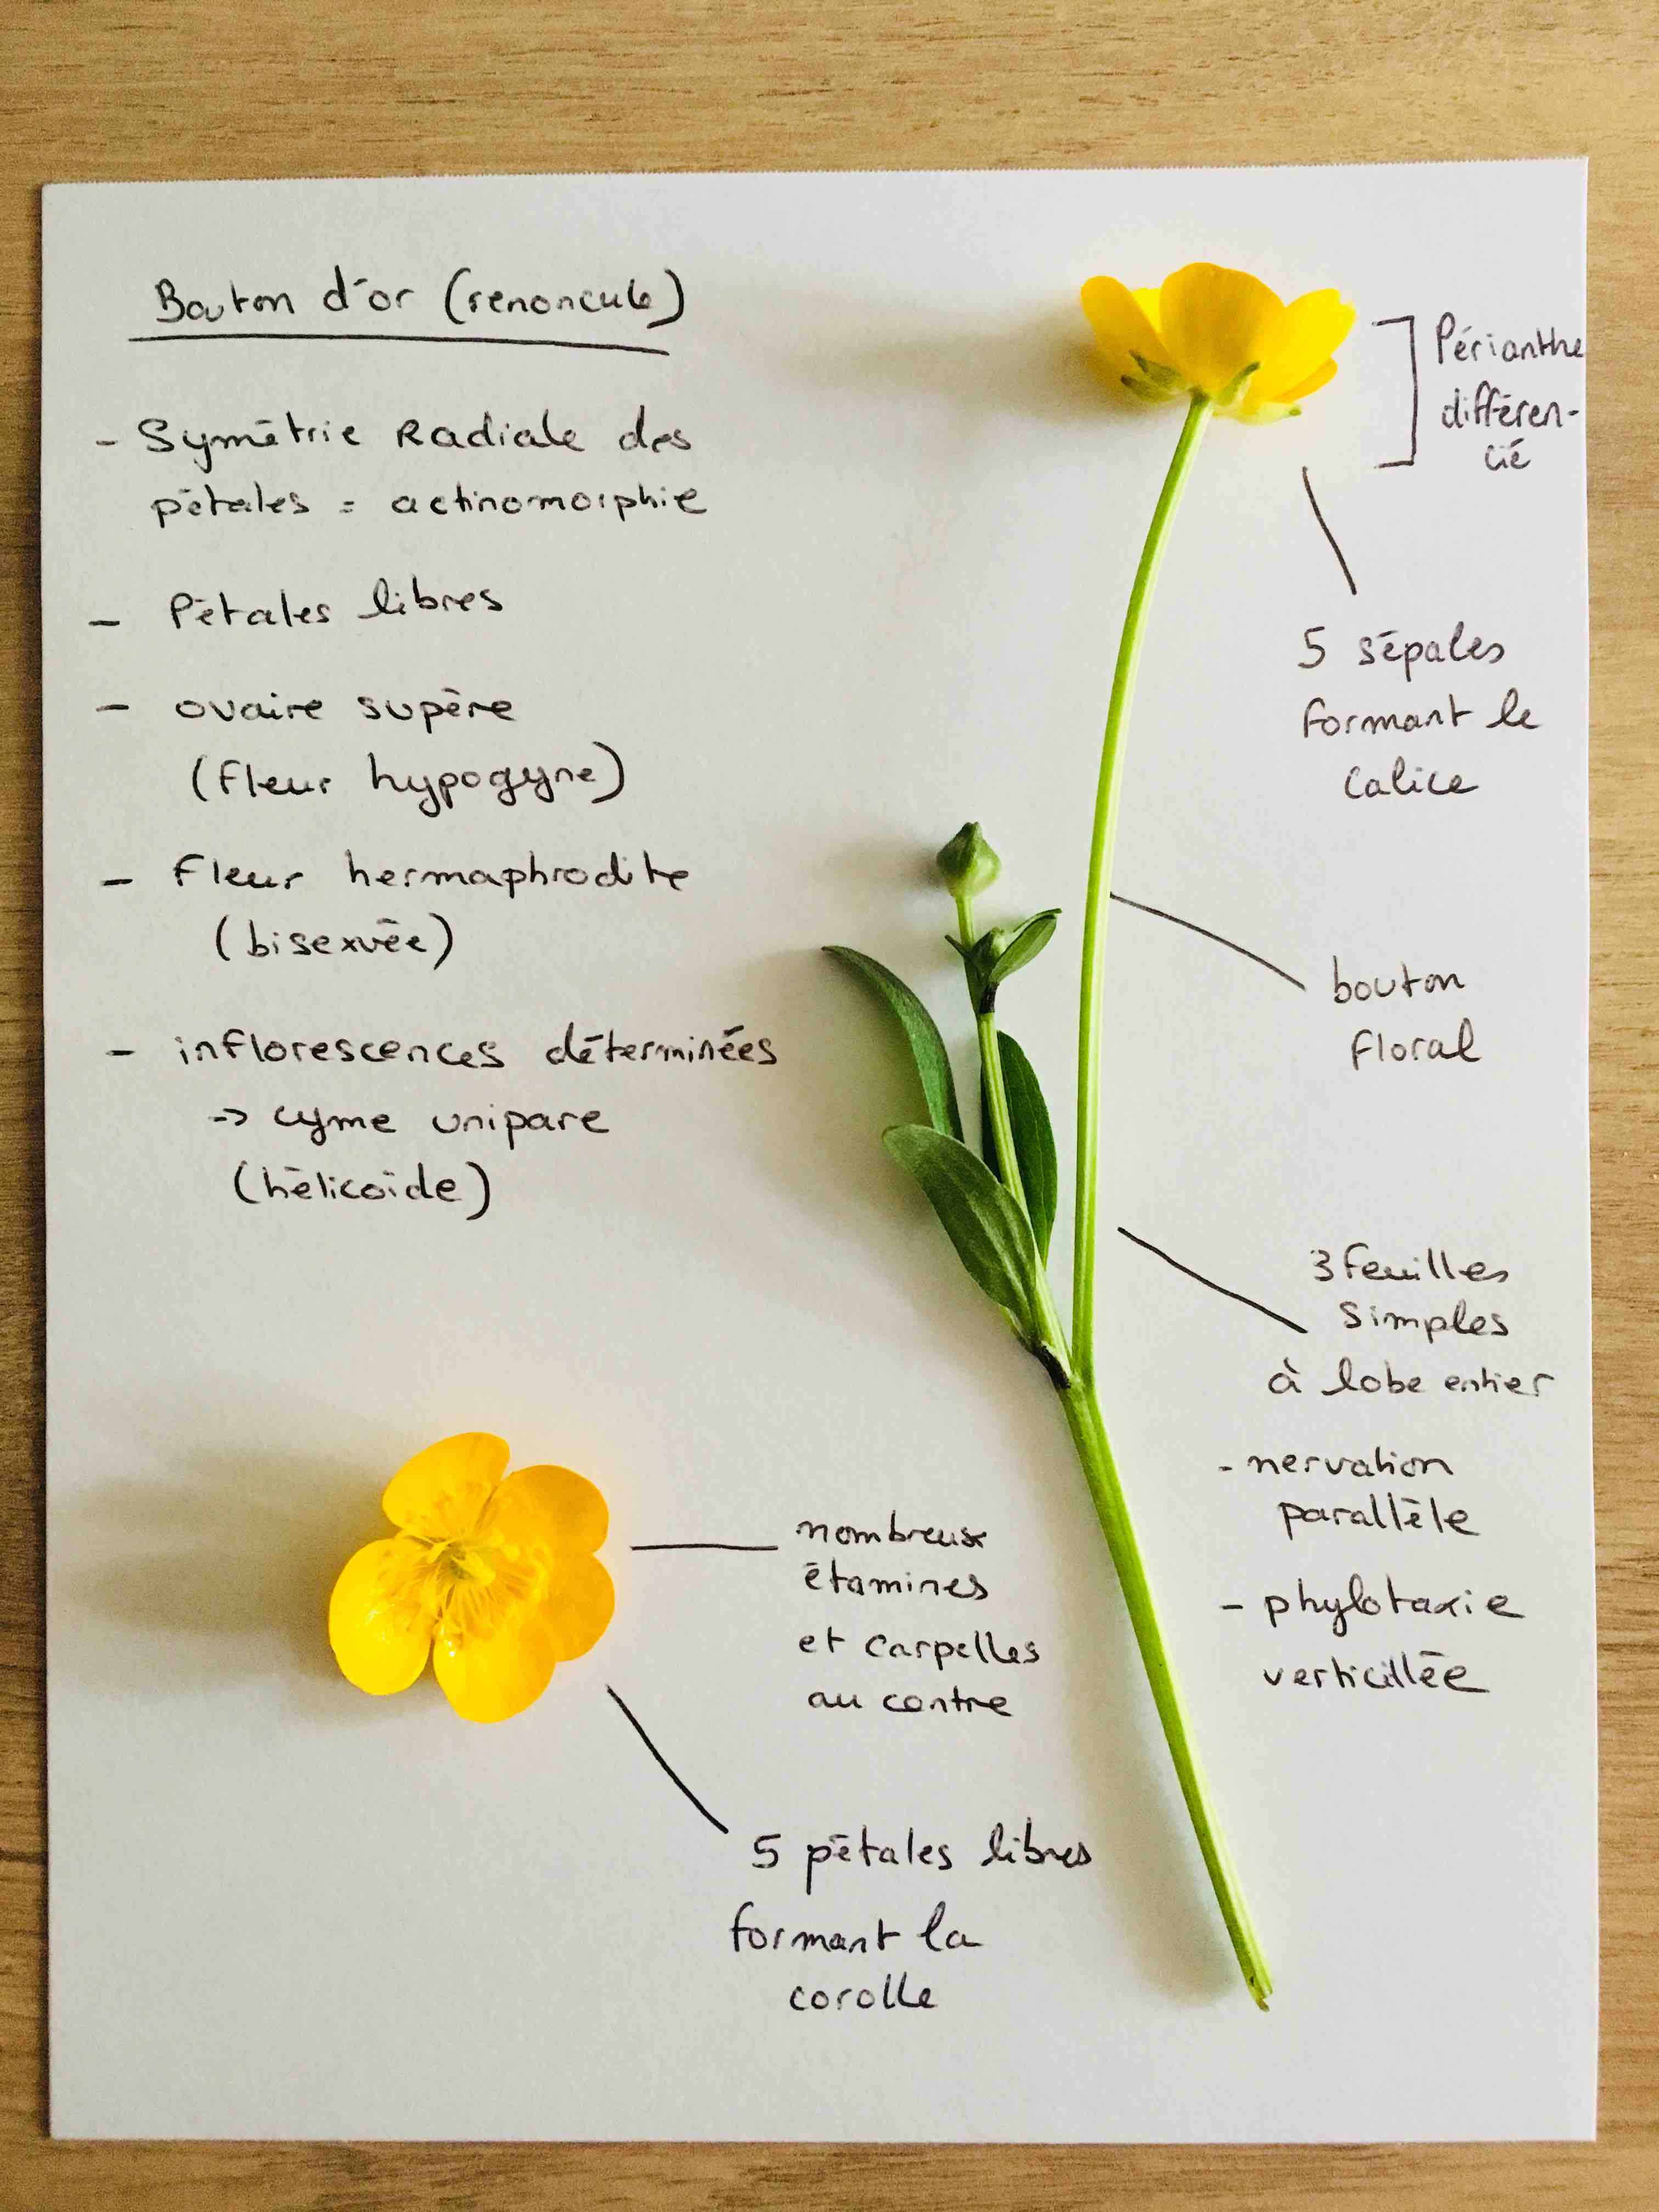 Bouton d'or (renoncule)
- Symétrie Radiale des
pétales = actinomorphie
- Pétales libres
- ovaire supère
(fleur hypogyne)
- Fleur hermaphrodite
(bisexuée)
- inflorescences déterminées
-> cyme unipare
(hélicoïde)
Périanthe
différen-
cié
5 sépales
formant le
calice
bouton
floral
3 feuilles
simples
à lobe entier
- nervation
parallèle
- phylotaxie
verticillée
nombreux
étamines
et carpelles
au contre
5 pétales libres
formant la
corolle